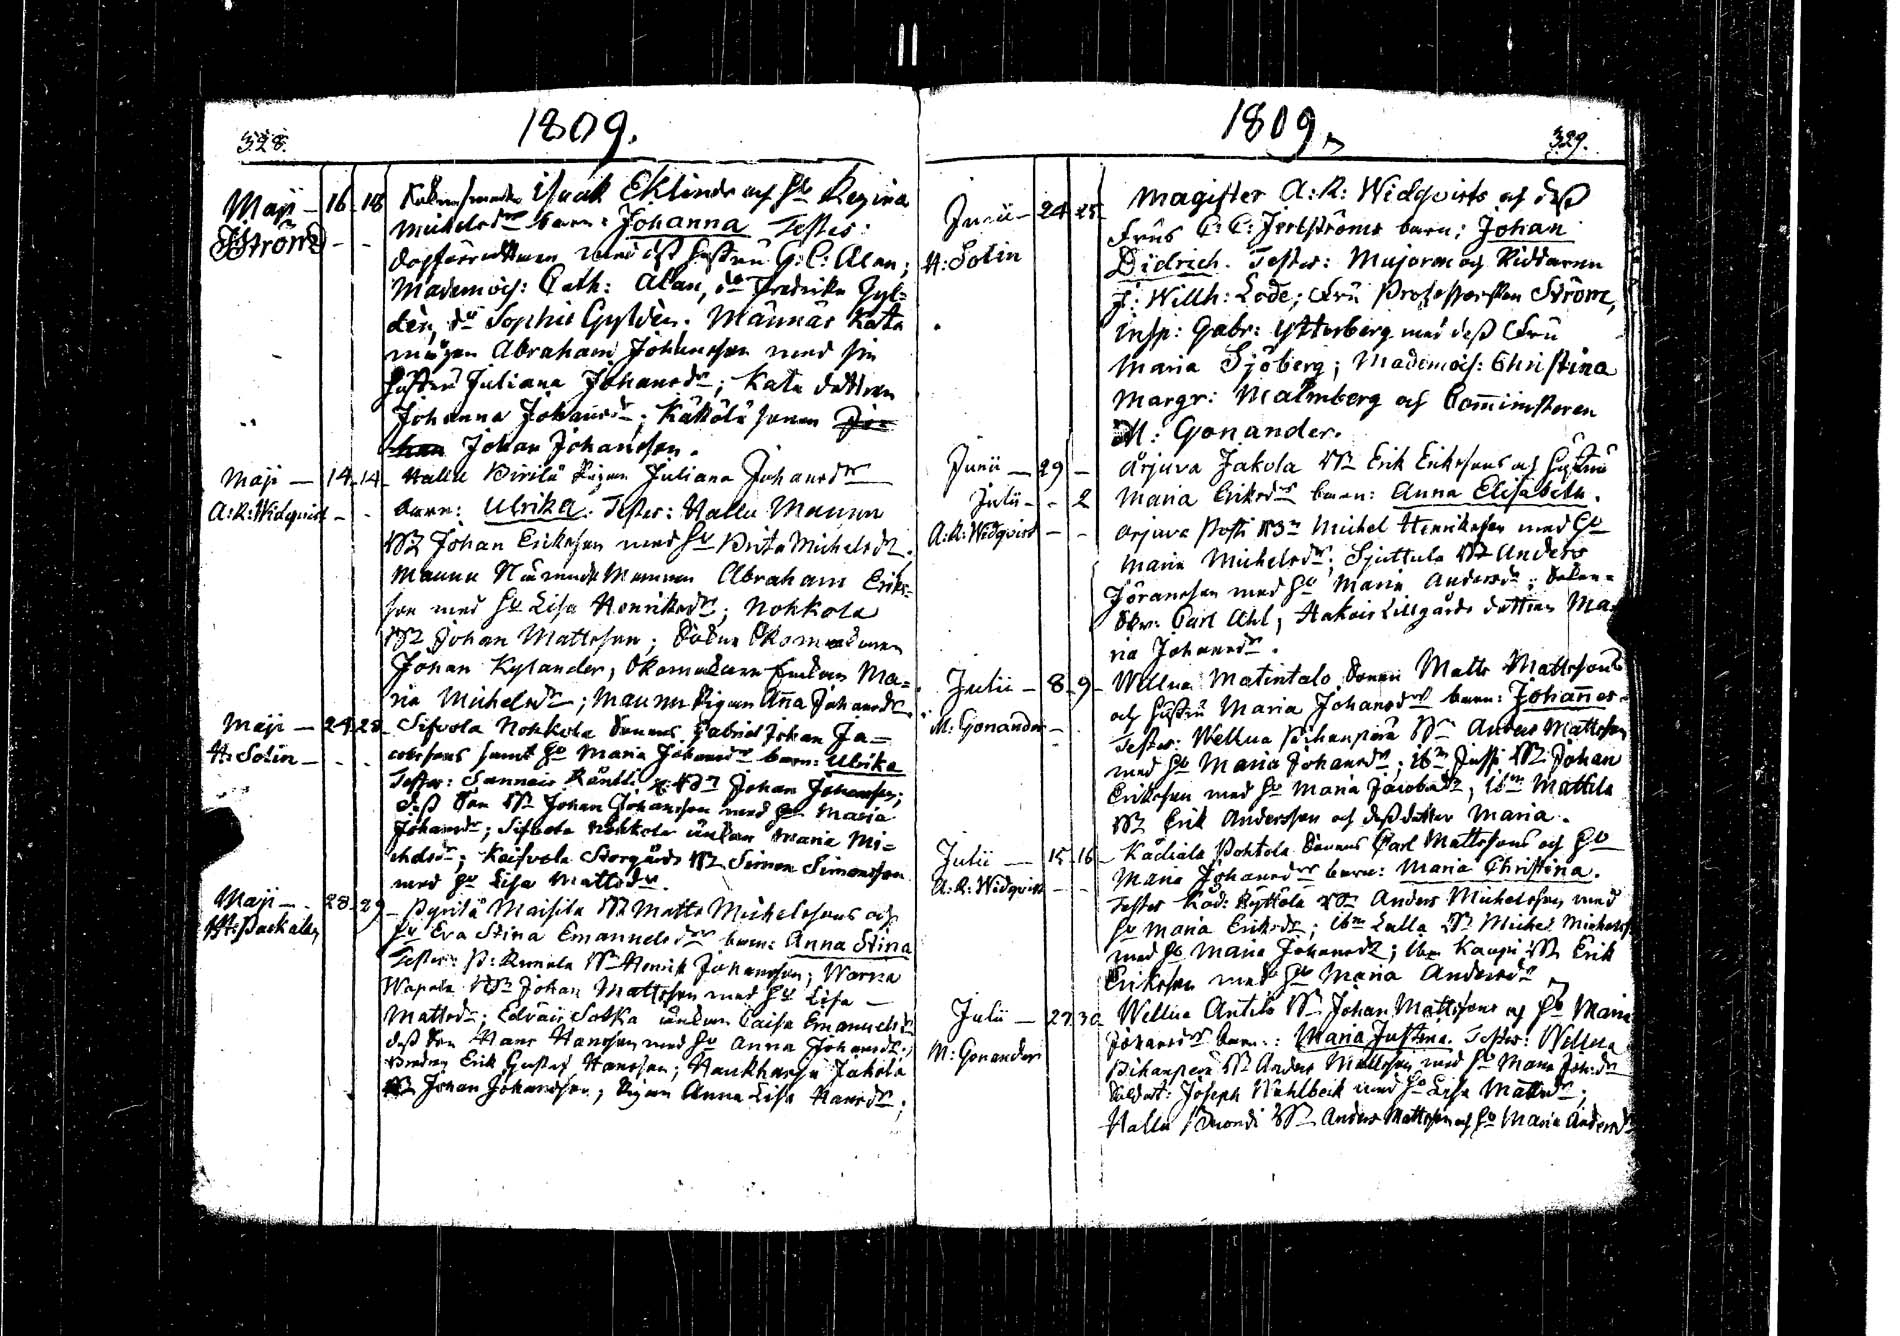 328.
1809.
Maji — 16 18 Isaak Eklinds och Hu Regina
J Ström — — Michelsdrs barn: Johanna Testes:
med dess hustru G: C: Alan;
Mademois: Cath: Alan, do Fredrika Gyl=
dén, do Sophie Gyldén. Maunas Kata
Abraham Johansson med sin
hustru Juliana Johansdr; Kata dottren
Johanna Johansdr; Käkölä sonen Jo=
han Johan Johansson.
Maji — 14 14 Hallu Pirilä Pigan Juliana Johansdrs
A: R: Widqvist — — barn: Ulrika. Testes: Hallu Maunu
Johan Eriksson med Hu Brita Michelsdr.
Maunu Abraham Eriks=
son med Hu Lisa Henriksdr; Nohkola
Johan Mattsson;
Johan Kylander, Enkan Ma=
ria Michelsdr; Maunu Pigan Anna Johansdr.
Maji — 27 28 Sifvola Nohkola Sonens Gabriel Johan Ja=
H: Solin — — — cobssons samt Hu Maria Johansdrs barn: Ulrika
Testes: Sannais Räntti Johan Johansson;
Dess Son Johan Johansson med Hu Maria
Johansdr; Sifvola Nohkola änkan Maria Mi=
chelsdr; Kaisvola Storgårds Simon Simonsson
med Hu Lisa Mattsdr.
Maji — 28 29 Pyrilä Maisila Matts Michelssons och
H: Paskaleg Hu Eva Stina Emanuelsdrs barn: Anna Stina
Testes: P: Runala Henrik Johansson; Warna
Wapola Johan Mattsson med Hu Lisa —
Mattsdr; Edväis Sotka änkan Caisa Emanuelsdr
dess Son Hans Hansson med Hu Anna Johansdr;
Erik Gustaf Hansson; Haukharju Jakola
Johan Johansson, Pigan Anna Lisa Hansdr;
1809.
329.
Junii — 24 25 Magister A: R: Widqvists och dess
H: Solin Frus C: C: Jerlströms barn: Johan
Didrich. Testes: Majoren och Riddaren
J: Wilh: Lode; Fru Professorskan Ström,
Insp: Gabr: Ytterberg med dess Fru
Maria Sjöberg; Mademois: Christina
Margr: Malmberg och Comministeren
M: Gonander.
Junii — 29 — Arjuva Jakola Erik Erikssons och hustru
Julii — — 2 Maria Eriksdrs barn: Anna Elisabeta.
A: R: Widqvist — — Arjuva Michel Henriksson med Hu
Maria Michelsdr; Sjuttula Anders
Göransson med Hu Maria Andersdr;
Carl Ahl; Hakois Lillgårds dottren Ma=
ria Johansdr.
Julii — 8 9 Wellua Matintalo Sonen Matts Mattssons
M: Gonander — och hustru Maria Johansdrs barn: Johannes.
Testes: Wellua Pihanperä Anders Mattsson
med Hu Maria Johansdr; ibm Jussi Johan
Eriksson med Hu Maria Jacobsdr; ibm Mattila
Erik Andersson och dess dotter Maria.
Julii — 15 16 Kädiala Pohtola Sonens Carl Mattssons och Hu
A: R: Widqvist — — Maria Johansdrs barn: Maria Christina.
Testes Käd: Kyttölä Anders Michelsson med
Hu Maria Eriksdr; ibm Lalla Michel Michelss
med Hu Maria Johansdr; ibm Kaupi Erik
Eriksson med Hu Maria Andersdr
Julii — 27 30 Wellua Anttis Johan Mattssons och Hu Maria
M: Gonander Johansdrs barn: Maria Justina. Testes: Wellua
Pihanperä Anders Mattsson med Hu Maria Joh:dr
Soldat: Joseph Wahlbeck med Hu Lisa Mattsdr;
Hallu Anders Mattsson och Hu Maria Andersdr